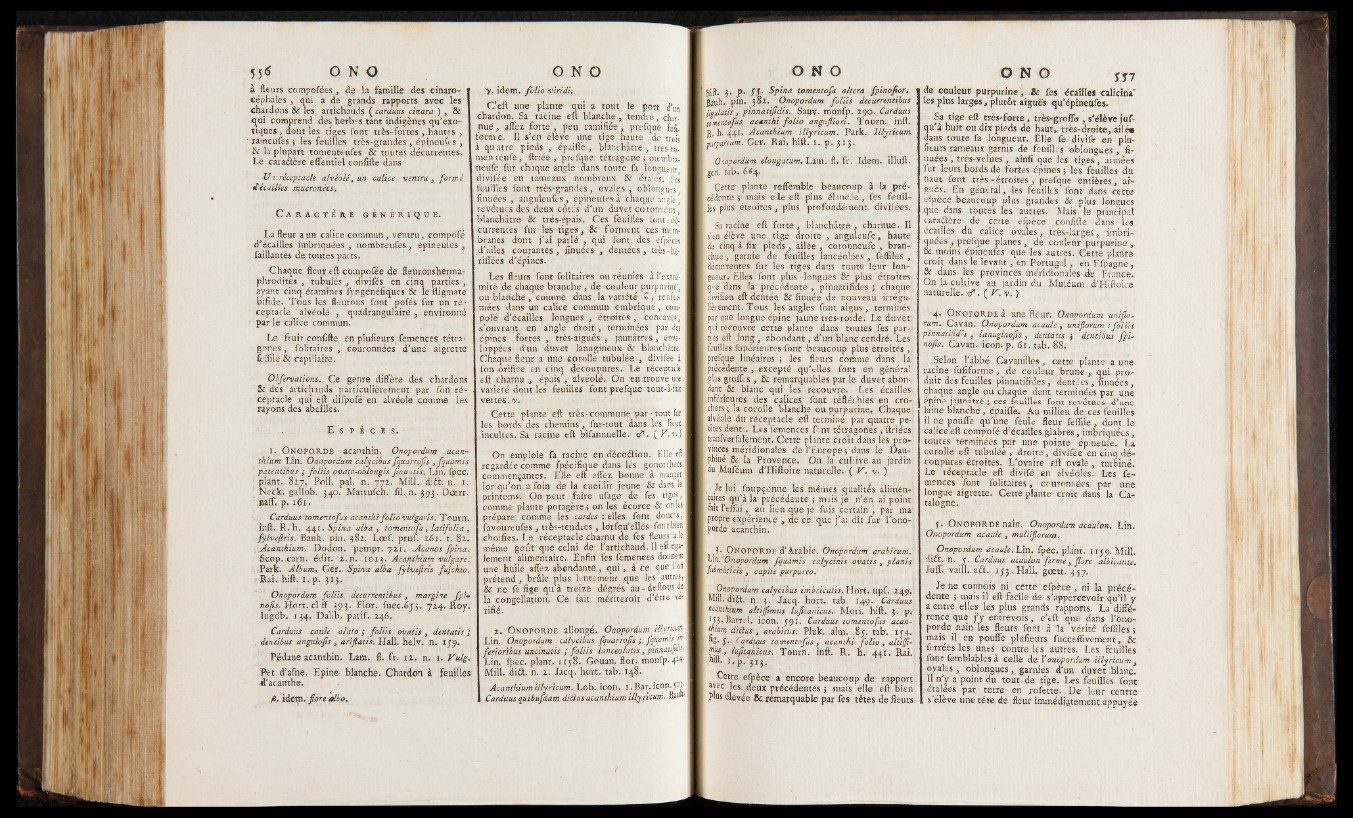 556 ONO
à fleurs compofées, de la famille des cinaro-
céphales, qui a de grands rapports avec les
chardons & les artichauds (carduus cinara), &
qui comprend des herbes tant indigènes qu'exo-
tiques, dont les tiges font très-fortes, hautes,
rameufes; les feuilles très-grandes, épineufes,
& la plupart tomenteufes & toutes décurrentes.
Le caractère effentiel confifte dans
Un réceptacle alvéolé, un calice ventru, formé
d'écailles mucronées.
CARACTÈRE GÉNÉRIQUE.
La fleur a un calice commun, ventru, compofé
d'écailles imbriquées, nombreufes, épineufes,
faillantes de toutes parts.
Chaque fleur eft compofée de fleurons herma-
phrodites, tubulés, divifés en cinq parties,
ayant cinq étamines fyngénéfiques & le ftigmate
bifide. Tous les fleurons font pofés fur un ré-
ceptacle alvéolé, quadrangulaire, environné
par le calice commun.
Le fruit confifte en plufieurs femences tétra-
gones, folitaires, couronnées d'une aigrette
feffile & capillaire.
Obfervations. Ce genre diffère des chardons
& des artichauds particulièrement par fon ré-
ceptacle qui eft difpofé en alvéole comme les
rayons des abeilles.
ESPÈCES.
1. ONOPORDE acanthin. Onopordum acan-
thium Lin. Onopordum calycibus fquarrofis, fquamis
patentibus; foliis ovato-oblongis finuatis. Lin. fpec.
plant. 827. Poll. pal. n. 772. Mill. dict. n. 1.
Neck. gallob. 340. Mattufch. fil. n. 593. Dœrr.
naff. p. 161.
Carduus tomentofus acanthi folio vulgaris. Tourn.
inft. R. h. 441. Spina alba, tomentofa, latifolia,
fylveftris. Bauh. pin. 382. Lœf. pruf. 261. t. 82.
Acanthium. Dodon. pempt. 721. Acanos fpina.
Scop. carn. édit. 2. n. 1013. Acanthium vulgare.
Park. Album. Ger. Spina alba fylveftris fufchio.
Rai. hift. 1. p. 313.
Onopordum foliis decurrentibus, margine fpi-
nofis. Hort. cliff 393. Flor. fuec. 653, 724. Roy.
lugdb. 134. Dalib. parif. 246.
Carduus caule alato; foliis ovatis, dentatis;
dentibus angulofis, ariftatis. Hall. helv. n. 159.
Pédane acanthin. Lam. fl. fr. 12. n. 1. Vulg.
Pet d'afne. Epine blanche. Chardon à feuilles
d'acanthe.
β. idem. flore albo.
ONO
γ. idem. folio viridi.
C'eft une plante qui a tout le port d'un
chardon. Sa racine eft blanche, tendre, char-
nue, affez forte, peu ramifiée, prefque fufi-
forme. Il s'en élève une tige haute de trois
à quatre pieds, épaiffe, blanchâtre, très-to-
menteufe, ftriée, prefque tétragone; membra-
neufe fur chaque angle dans toute fa longueur,
divifée en rameaux nombreux & étalés. Ses
feuilles font très-grandes, ovales, oblongues,
finuées, anguleufes, épineufes à chaque angle,
revêtues des deux côtés d'un duvet cotonneux,
blanchâtre & très-épais. Ces feuilles font dé-
currentes fur les tiges, & forment ces mem-
branes dont j'ai parlé, qui font des efpèces
d'ailes courantes, finuées, dentées, très-hé-
riffées d'épines.
Les fleurs font folitaires ou réunies à l'extré-
mité de chaque branche, de couleur purpurine,
ou blanche, comme dans la variété β, renfer-
mées dans un calice commun embriqué, com-
pofé d'écailles longues, étroites, concaves,
s'ouvrant en angle droit, terminées par des
épines fortes, très-aiguës, jaunâtres, enve-
loppées d'un duvet lanugineux & blanchâtre.
Chaque fleur a une corolle tubulée, divifée à
fon orifice en cinq découpures. Le réceptacle
eft charnu, épais, alvéolé. On en trouve une
variété dont les feuilles font prefque tout-à-fait
vertes. γ.
Cette plante eft très-commune par-tout fur
les bords des chemins, fur-tout dans les lieux
incultes. Sa racine eft bifannuelle. ♂. (V. v.)
On emploie fa racine en décoction. Elle eft
regardée comme fpécifique dans les gonorrhées
commençantes. Elle eft affez bonne à manger
lorfqu'on a foin de la cueillir jeune & dans le
printems. On peut faire ufage de fes tiges,
comme plante potagère; on les écorce & on les
prépare comme les cardes: elles font douces,
favoureufes, très-tendres, lorfqu'elles font bien
choifies. Le réceptacle charnu de fes fleurs a le
même goût que celui de l'artichaud. Il eft éga-
lement alimentaire. Enfin fes femences donnent
une huile affez abondante, qui, à ce que l'on
prétend, brûle plus lentement que les autres,
& ne fe fige qu'à treize dégrés au-deffous de
la congellation. Ce fait mériteroit d'être vé-
rifié.
2. ONOPORDE allongé. Onopordum illyricum.
Lin. Onopordum calycibus fquarrofis; fquamis in-
ferioribus uncinatis; foliis lanceolatis, pinnatifidis.
Lin. fpec. plant. 1158. Gouan. flor. monfp. 424.
Mill. dict. n. 2. Jacq. hort. tab. 148.
Acanthium illyricum. Lob. icon. 1. Bar. icon. 501.
Carduus quibufdam dictus acanthium illyricum. Bauh.
ONO
hift. 3. p. 55. Spina tomentofa altera fpinofior.
Bauh. pin. 382. Onopordum foliis decurrentibus
ligulatis, pinnatifidis. Sauv. monfp. 290. Carduus
tomentofus acanthi folio anguftiori. Tourn. inft.
R. h. 441. Acanthium illyricum. Park. Illyricum
purpureum. Ger. Rai. hift. 1. p. 313.
Onopordum elongatum. Lam. fl. fr. Idem. illuft.
gen. tab. 664.
Cette plante reffemble beaucoup à la pré-
cédente; mais elle eft plus élancée, fes feuil-
les plus étroites, plus profondément divifées.
Sa racine eft forte, blanchâtre, charnue. Il
s'en élève une tige droite, anguleufe, haute
de cinq à fix pieds, ailée, cotonneufe, bran-
chue, garnie de feuilles lancéolées, feffiles,
décurrentes fur les tiges dans toute leur lon-
gueur. Elles font plus longues & plus étroites
que dans la précédente, pinnatifides; chaque
divifion eft dentée & finuée de nouveau irrégu-
lièrement. Tous les angles font aigus, terminés
par une longue épine jaune très-roide. Le duvet
qui recouvre cette plante dans toutes fes par-
ties eft long, abondant, d'un blanc cendré. Les
feuilles fupérieures font beaucoup plus étroites,
prefque linéaires; les fleurs comme dans la
précédente, excepté qu'elles font en général
plus groffes, & remarquables par le duvet abon-
dant & blanc qui les recouvre. Les écailles
inférieures des calices font réfléchies en cro-
chets; la corolle blanche ou purpurine. Chaque
alvéole du réceptacle eft terminé par quatre pe-
tites dents. Les femences font tétragones, ftriées
tranfverfalement. Cette plante croît dans les pro-
vinces méridionales de l'Europe; dans le Dau-
phiné & la Provence. On la cultive au jardin
du Mufeum d'Hiftoire naturelle. (V. v.)
Je lui foupçonne les mêmes qualités alimen-
taires qu'à la précédente; mais je n'en ai point
fait l'effai, au lieu que je fuis certain, par ma
propre expérience, de ce que j'ai dit fur l'ono-
porde acanthin.
3. ONOPORDE d'Arabie. Onopordum arabicum.
Lin. Onopordum fquamis calycinis ovatis, planis
fubmuticis, capite purpureo.
Onopordum calycibus imbricatis. Hort. upf. 249.
Mill. dict. n. 3. Jacq. hort. tab. 149. Carduus
acanthium altiffimus lufitanicus. Mori. hift. 3. p.
153. Barrel. icon. 591. Carduus tomentofus acan-
thium dictus, arabicus. Pluk. alm. 85. tab. 154.
fig. 5. Carduus tomentofus, acanthi folio, altiffi-
mus, lufitanicus. Tourn. inft. R. h. 441. Rai.
hift. 1. p. 313.
Cette efpèce a encore beaucoup de rapport
avec les deux précédentes; mais elle eft bien
plus élevée & remarquable par fes têtes de fleurs
ONO 557
de couleur purpurine, & fes écailles calicina
les plus larges, plutôt aiguës qu'épineufes.
Sa tige eft très-forte, très-groffe, s'élève juf-
qu'à huit ou dix pieds de haut, très-droite, ailée
dans toute fa longueur. Elle fe divife en plu-
fieurs rameaux garnis de feuilles oblongues, fi-
nuées, très-velues, ainfi que les tiges, armées
fur leurs bords de fortes épines; les feuilles du
haut font très-étroites, prefque entières, ai-
guës. En général, les feuilles font dans cette
efpèce beaucoup plus grandes & plus longues
que dans toutes les autres. Mais le principal
caractère de cette efpèce confifte dans les
écailles du calice ovales, très-larges, imbri-
quées, prefque planes, de couleur purpurine,
& moins épineufes que les autres. Cette plante
croît dans le levant, en Portugal, en Efpagne,
& dans les provinces méridionales de France.
On la cultive au jardin du Muféum d'Hiftoire
naturelle. ♂. (V. v.)
4. ONOPORDE à une fleur. Onopordum uniflo-
rum. Cavan. Onopordum acaule, uniflorum: foliis
pinnatifidis, lanuginofis, dentatis; dentibus fpi-
nofis. Cavan. icon. p. 61. tab. 88.
Selon l'abbé Cavanilles, cette plante a une
racine fufiforme, de couleur brune, qui pro-
duit des feuilles pinnatifides, dentées, finuées,
chaque angle ou chaque dent terminées par une
épine jaunâtre; ces feuilles font revêtues d'une
laine blanche, épaiffe. Au milieu de ces feuilles
il ne pouffe qu'une feule fleur feffile, dont le
calice eft compofé d'écailles glabres, imbriquées,
toutes terminées par une pointe épineufe. La
corolle eft tubulée, droite, divifée en cinq dé-
coupures étroites. L'ovaire eft ovale, turbiné.
Le réceptacle eft divifé en alvéoles. Les fe-
mences font folitaires, couronnées par une
longue aigrette. Cette plante croît dans la Ca-
talogne.
5. ONOPORDE nain. Onopordum acaulon. Lin.
Onopordum acaule, multiflorum.
Onopordum acaule. Lin. fpec. plant. 1159. Mill.
dict. n. 5. Carduus acaulon ferme, flore albicante.
Juff. vaill. act. 153. Hall. gœtt. 357.
Je ne connois ni cette efpèce, ni la précé-
dente; mais il eft facile de s'appercevoir qu'il y
a entre elles les plus grands rapports. La diffé-
rence que j'y entrevois, c'eft que dans l'ono-
porde nain les fleurs font à la vérité feffiles;
mais il en pouffe plufieurs fucceffivement, &
ferrées les unes contre les autres. Les feuilles
font femblables à celle de l'onopordum illyricum,
ovales, oblongues, garnies d'un duvet blanc.
Il n'y a point du tout de tige. Les feuilles font
étalées par terre en rofette. De leur centre
s'élève une tête de fleur immédiatement appuyée